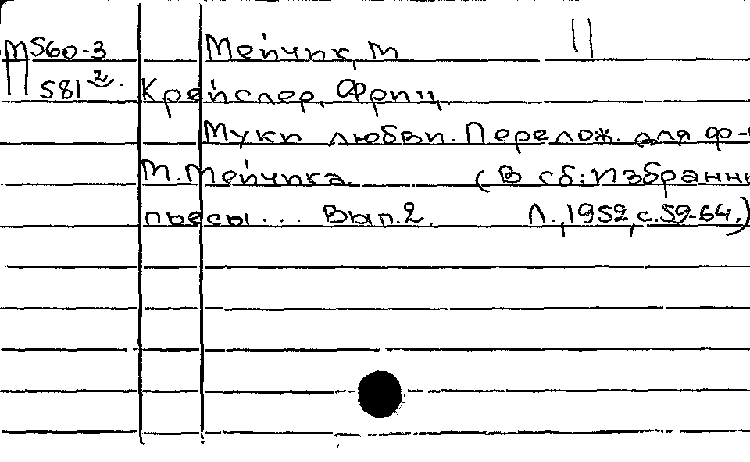 М560-3 Мейчик, М 11
581² Крейслер, Фриц
Муки любви. Перелож. для ф-
М. Мейчика (В сб: Избранн
пьесы... Вып. 2. Л., 1952, с. 59-64.)